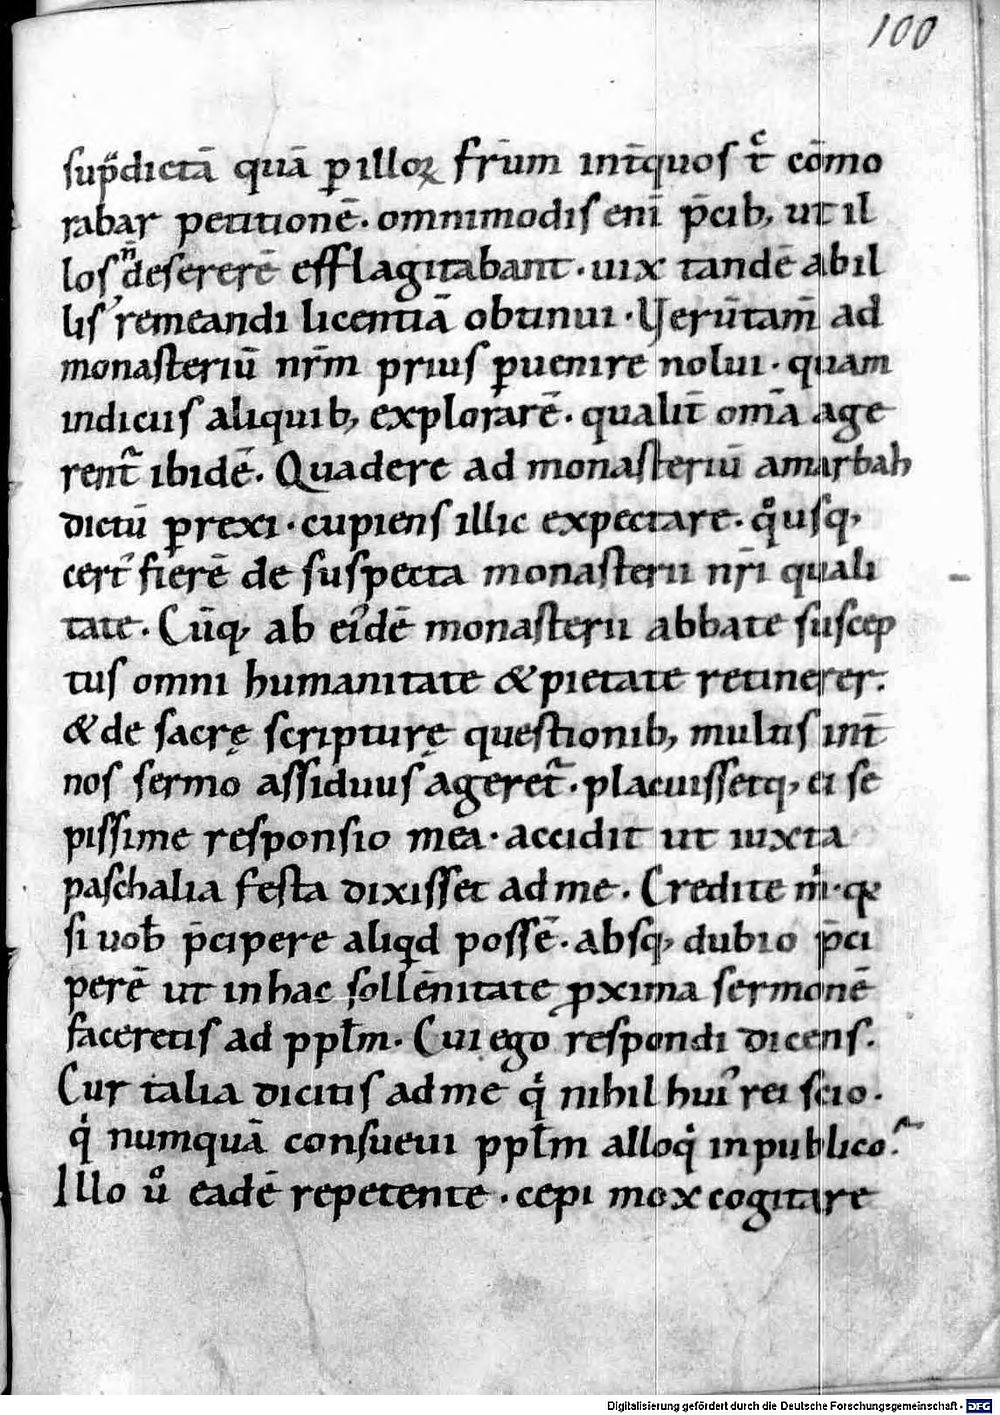 100
sup̄dictā quā ꝑ illoꝝ fr̄um int̄quos tc̄ cōmo
rabar petitionē. omnimodis enī p̄cib; ut il
los n̄ desererē efflagitabant. uix tandē ab il
lis remeandi licentiā obtinui. Verūtam̄ ad
monasteriū nr̄m prius ꝑuenire nolui. quam
indiciis aliquib; explorarē. qualit̄ om̄a age
rent᷑ ibidē. Qua de re ad monasteriū amarbah
dictū ꝑrexi. cupiens illic expectare. qͦusq;
certꝰ fierē de suspecta monasterii nr̄i quali
tate. Cūq; ab eiꝰdē monasterii abbate suscep
tus omni humanitate & pietate retinerer.
& de sacrę scripturę questionib; multis int̄
nos sermo assiduus ageret᷑. placuissetq; ei se
pissime responsio mea. accidit ut iuxta
paschalia festa dixisset ad me. Credite m̍. qꝛ
si uob̄ p̄cipere aliqd possē. absq; dubio p̄ci
perē ut in hac sollēnitate ꝓxima sermonē
faceretis ad ppl̄m. Cui ego respondi dicens.
Cur talia dicitis ad me qͥ nihil huiꝰ rei scio.
qͥ numquā consueui ppl̄m alloqͥ in publico.
Illo uͦ eadē repetente. cepi mox cogitare
Digitalisierung gefördert durch die Deutsche Forschungsgemeinschaft - DFG